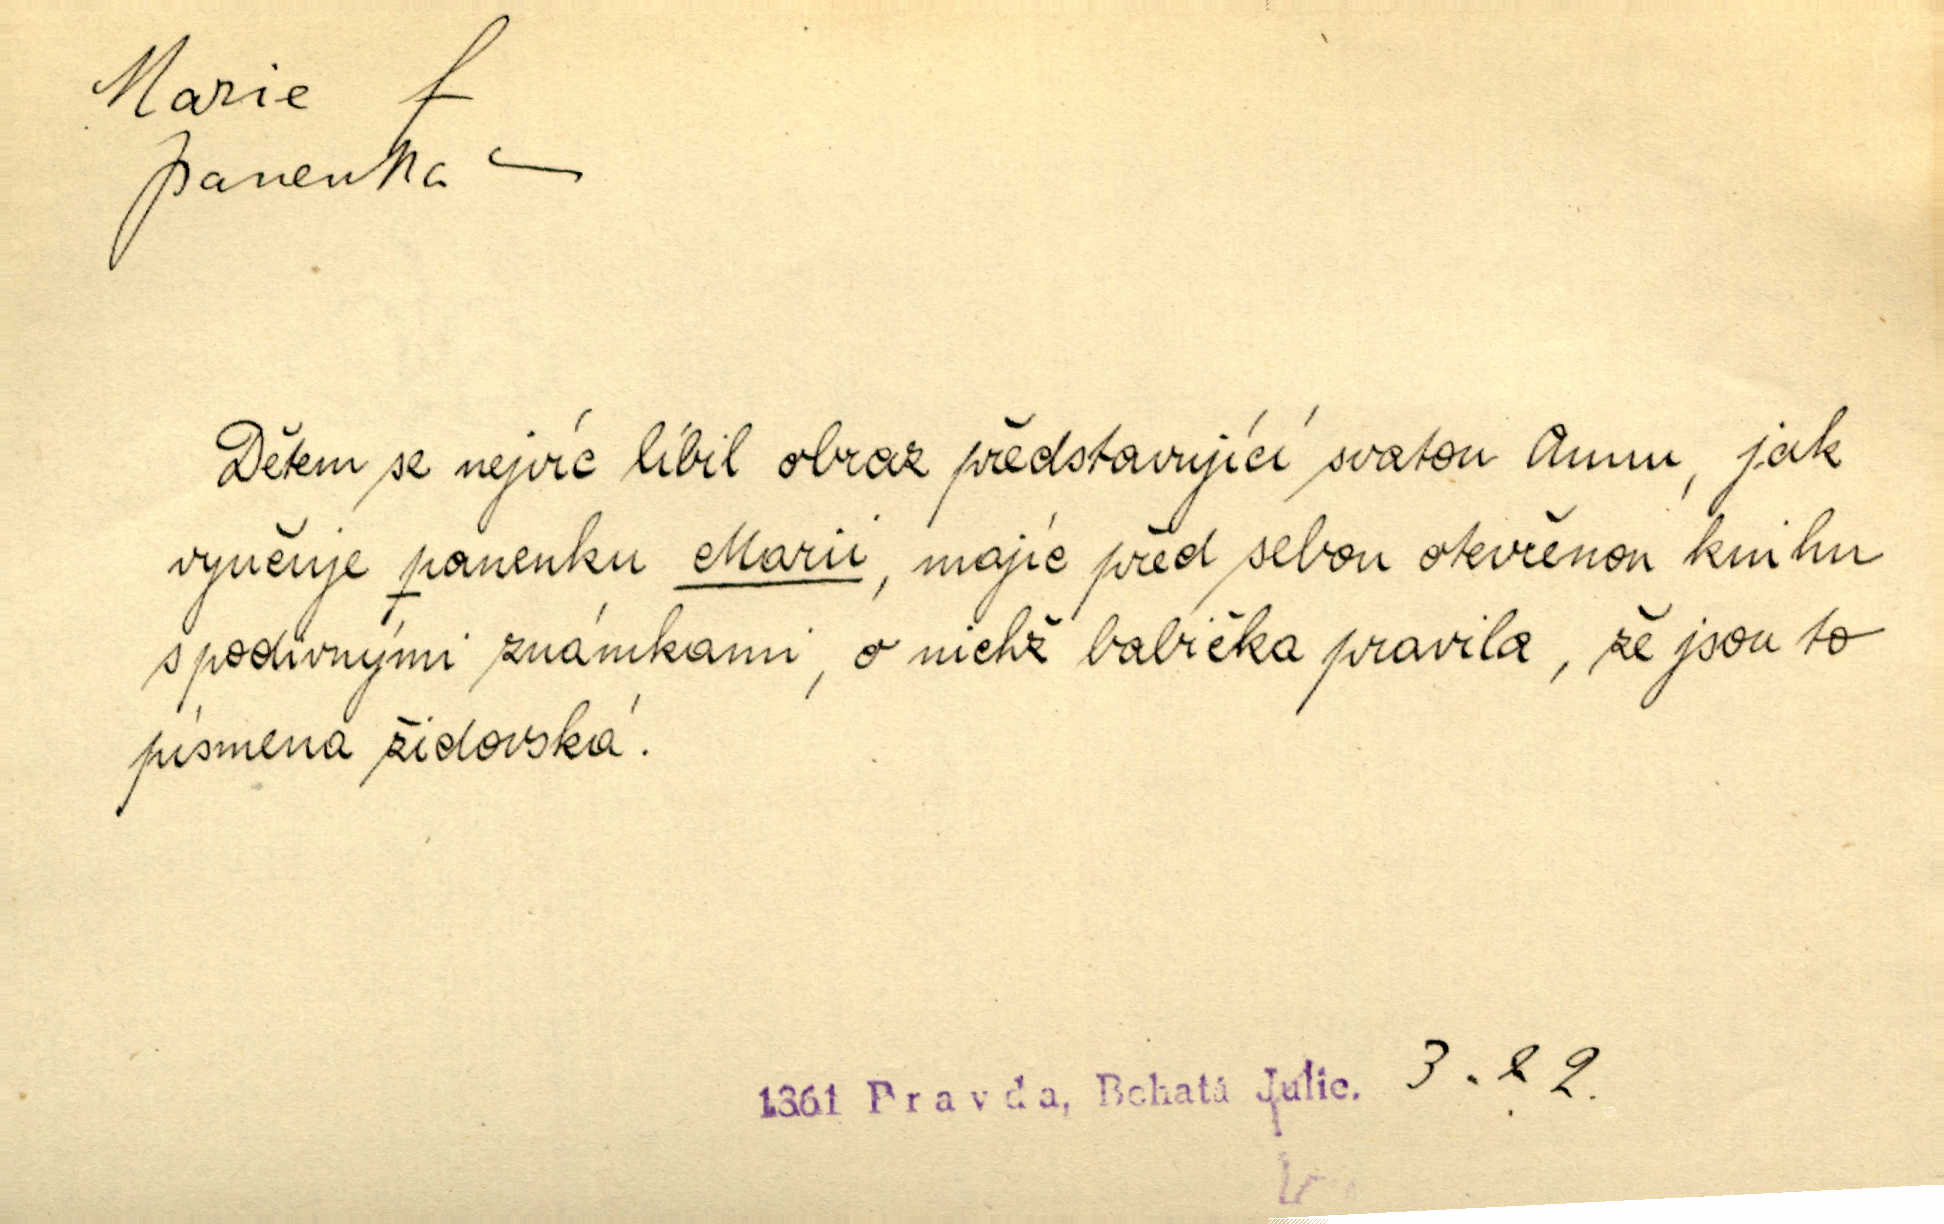 Marie f
panenka
Dětem se nejvíc líbil obraz představující svatou Annu, jak
vyučuje panenku Marii, majíc před sebou otevřenou knihu
s podivnými známkami, o nichž babička pravila, že jsou to
písmena židovská.
1361 Pravda, Bohatá Julie. 3. 2.